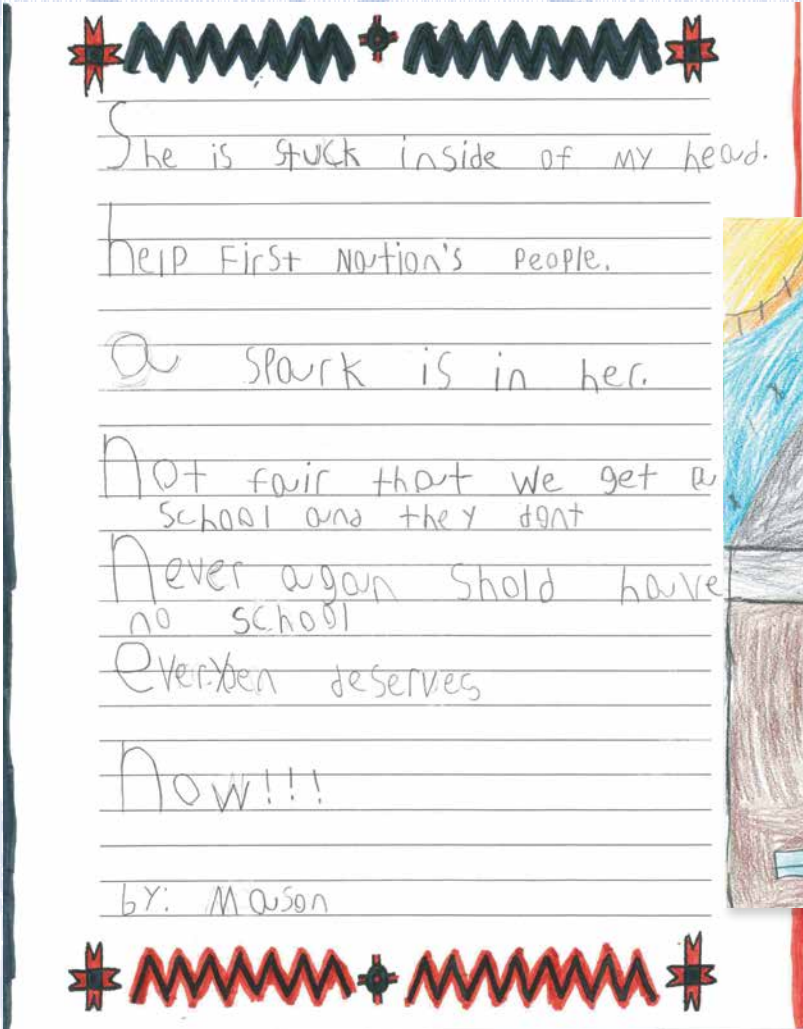 She is stuck inside of my head.
help First Nation's People.
a spark is in her.
not fair that we get a
school and they dont
never agan Shold have
no school
everyben deserves
now!!!
by: Mason